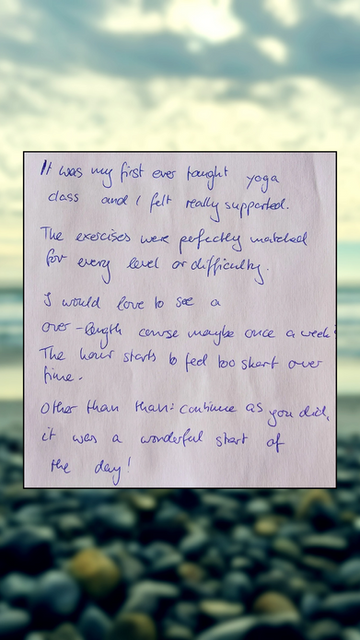 It was my first ever taught yoga
class and I felt really supported.
The exercises were perfectly matched
for every level or difficulty.
I would love to see a
over-length course maybe once a week?
The hour starts to feel too short over
time.
Other than than: continue as you did,
it was a wonderful start of
the day!